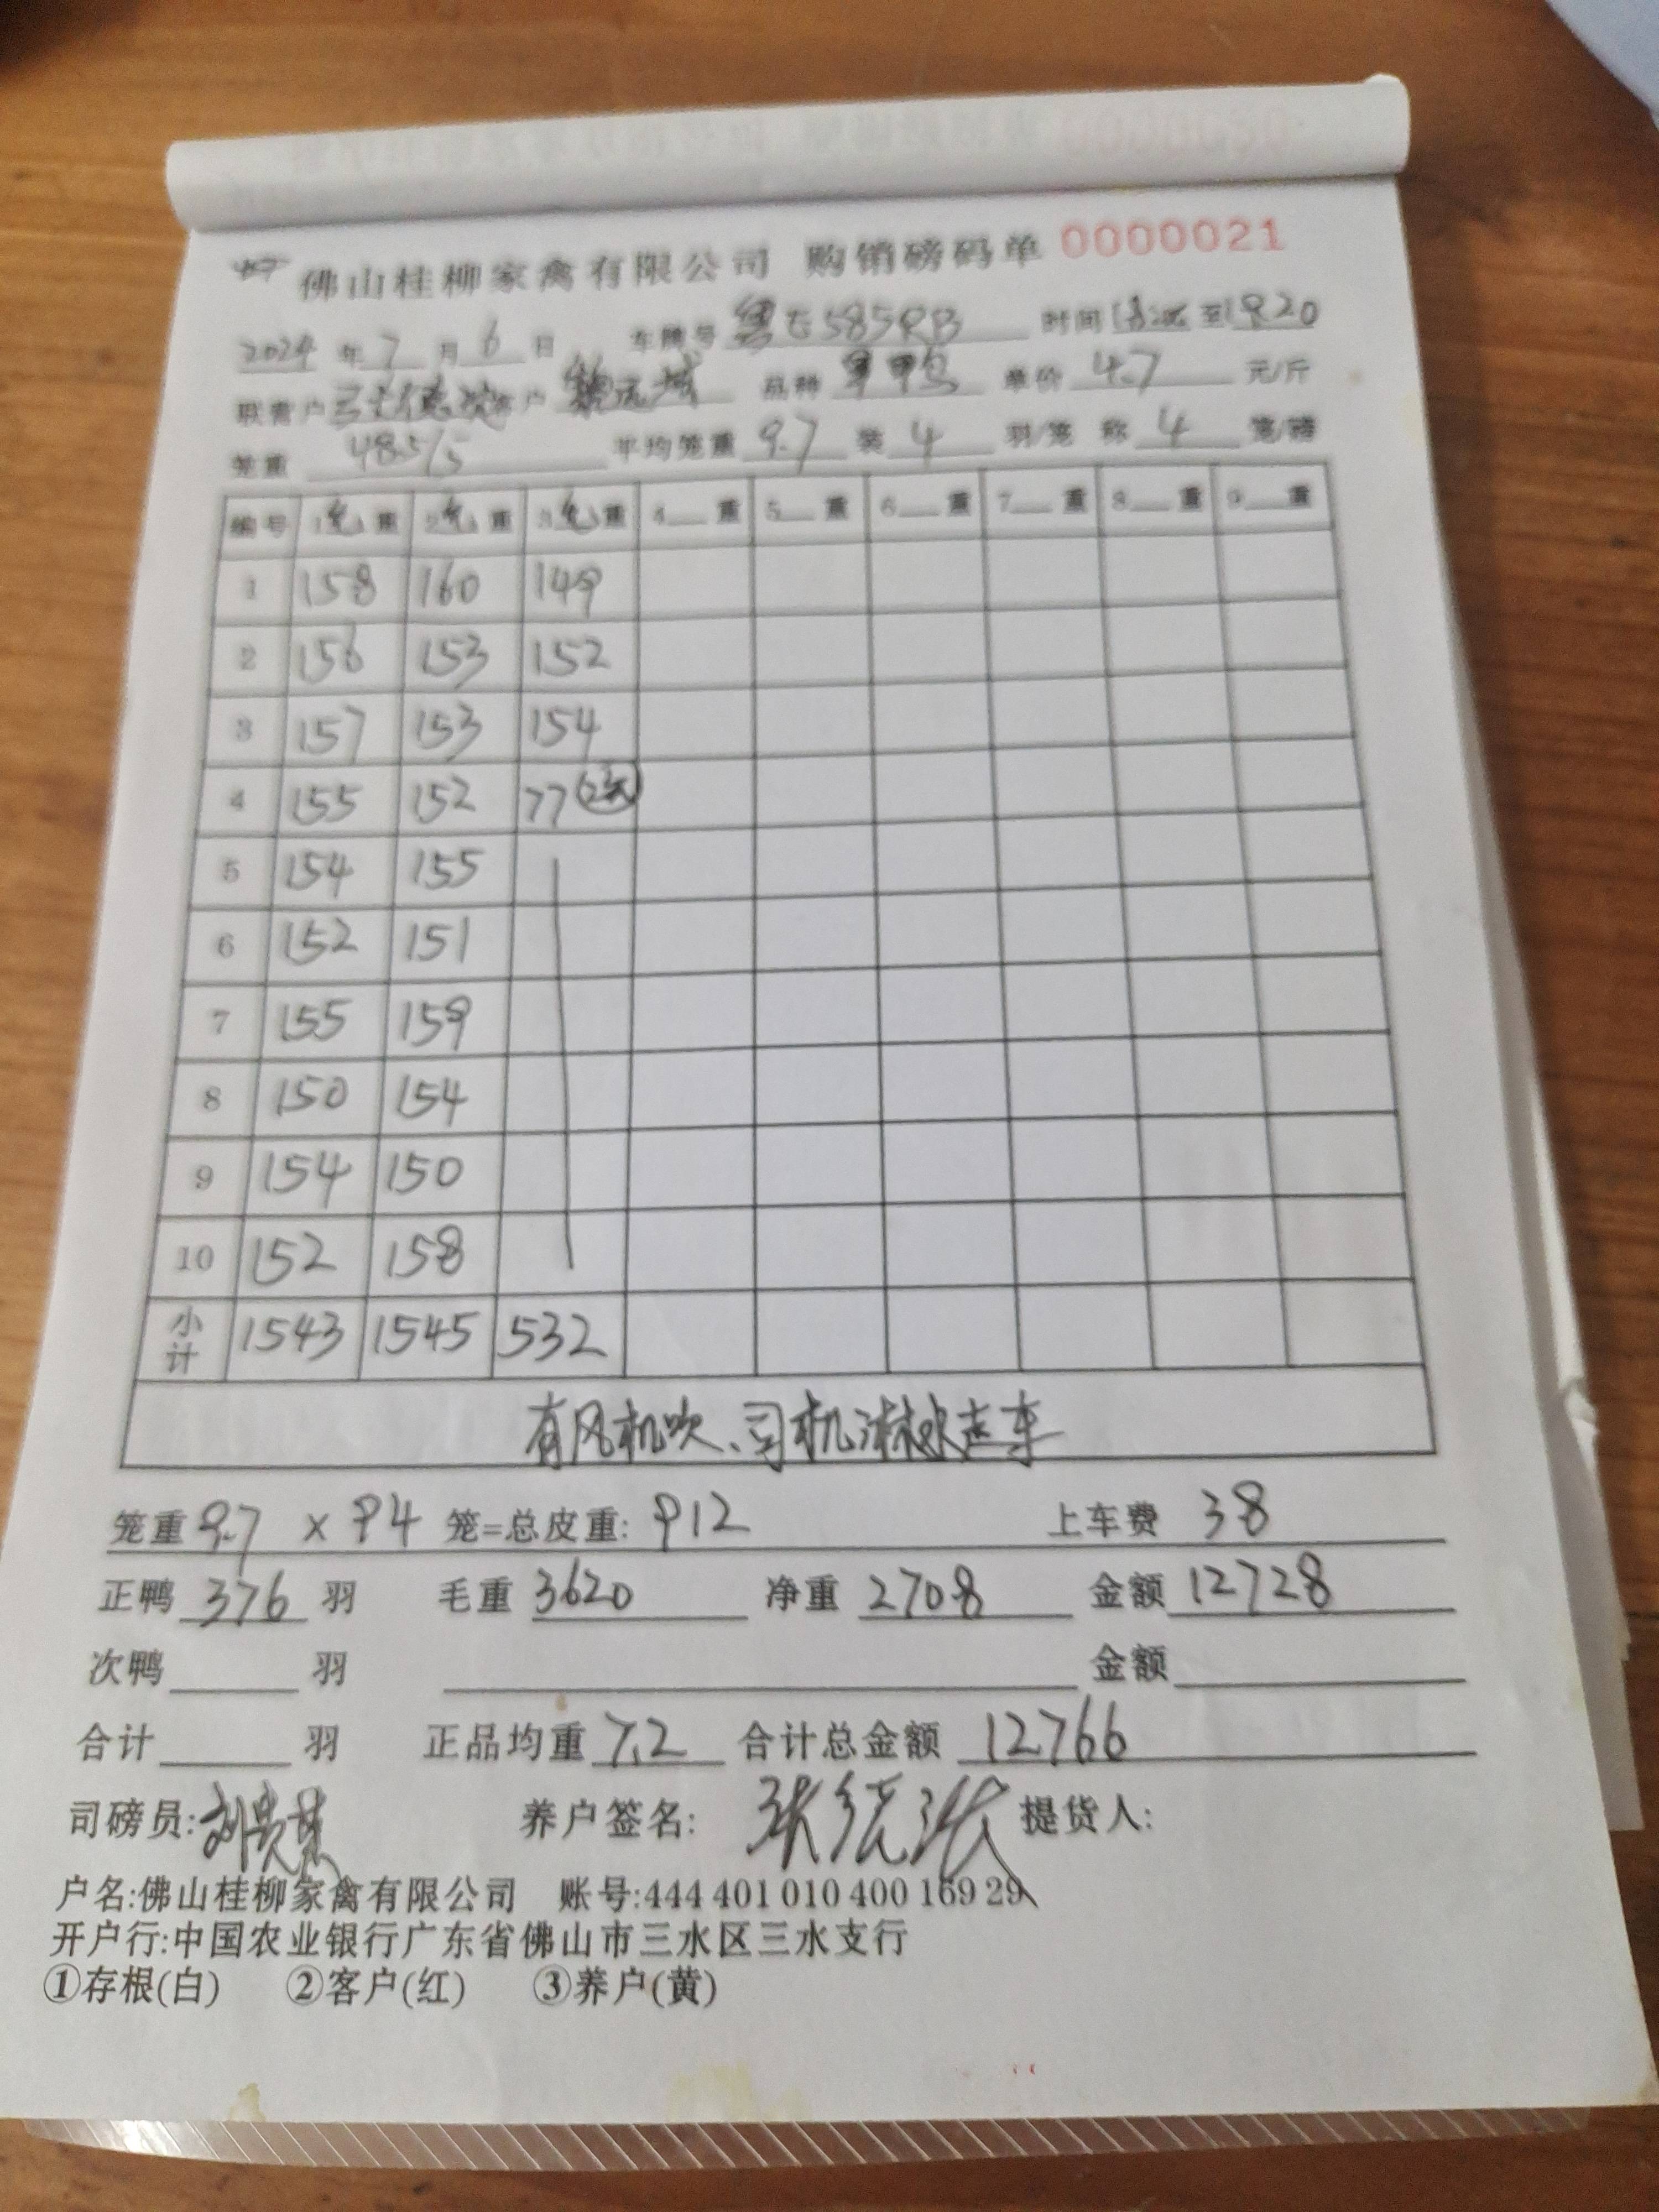 佛山桂柳家禽有限公司 购销磅码单 0000021
2024 年 7 月 6 日 车牌号 粤E585RB 时间 至 1920
联营户 客户 品种 单价 4.7 元/斤
笼重 48.5/5 平均笼重 9.7 装 4 羽/笼 称 4 笼/磅
编号 1 毛 重 2 毛 重 3 毛 重 4 重 5 重 6 重 7 重 8 重 9 重
1 158 160 149
2 156 153 152
3 157 153 154
4 155 152 77
5 154 155
6 152 151
7 155 159
8 150 154
9 154 150
10 152 158
小计 1543 1545 532
有风机吹、司机淋水走车
笼重 9.7 × 94 笼=总皮重: 912 上车费 38
正鸭 376 羽 毛重 3620 净重 2708 金额 12728
次鸭 羽 金额
合计 羽 正品均重 7.2 合计总金额 12766
司磅员: 养户签名: 提货人:
户名:佛山桂柳家禽有限公司 账号:444 401 010 400 169 29
开户行:中国农业银行广东省佛山市三水区三水支行
①存根(白) ②客户(红) ③养户(黄)